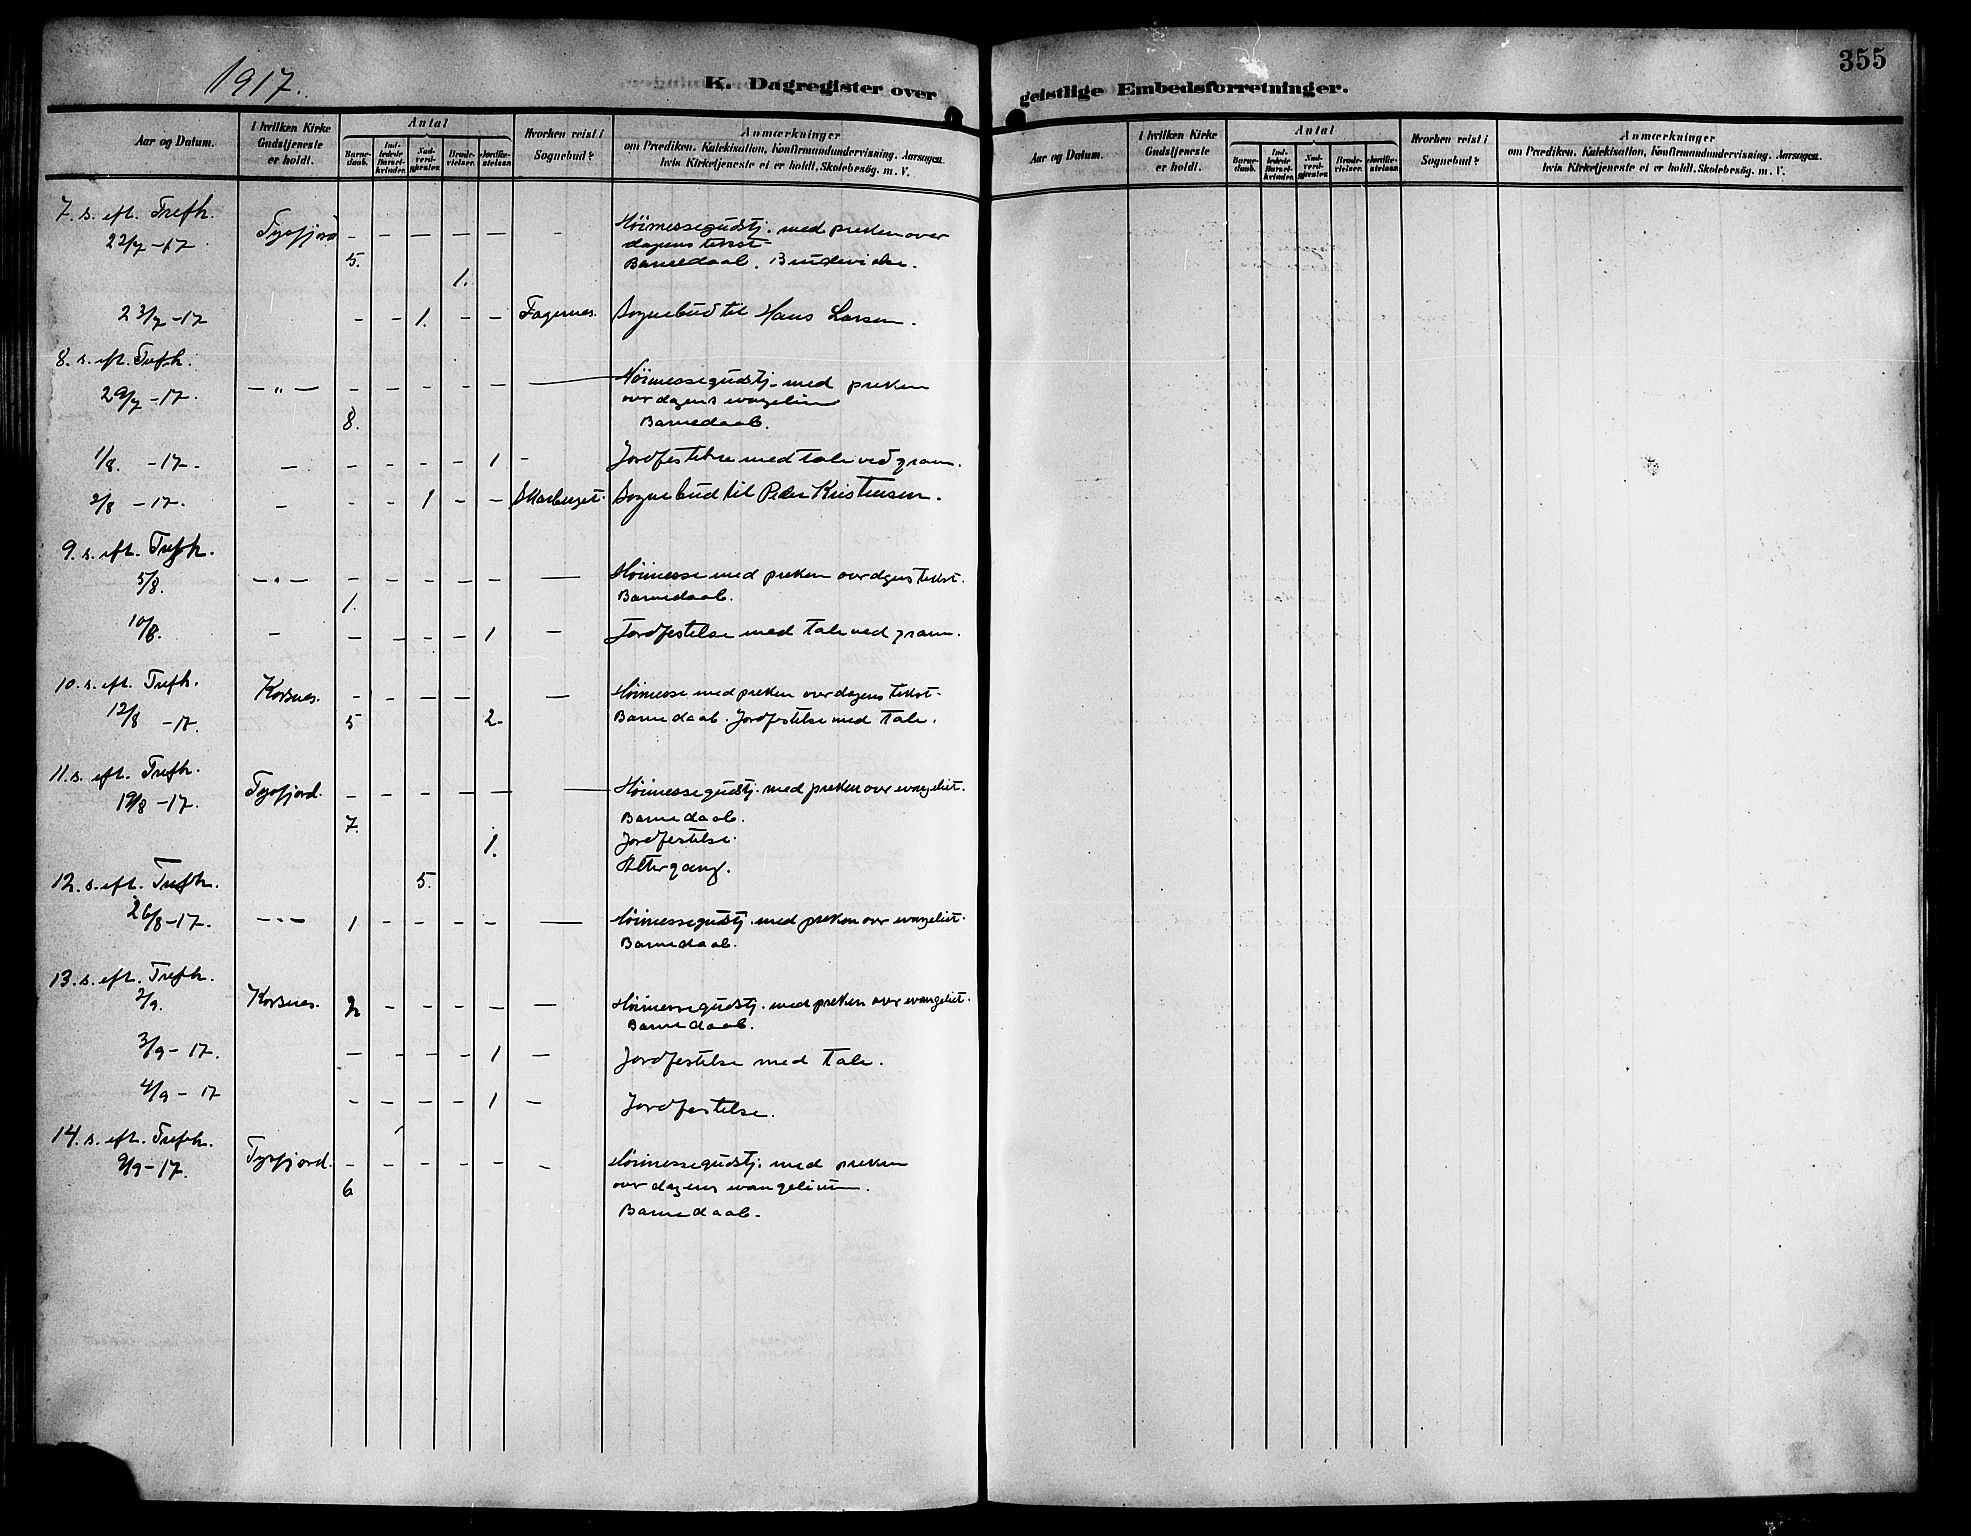 1917.
K. Dagregister over
geistlige Embedsforretninger.
355
Aar og Datum.
I hvilken Kirke Gudstjeneste er holdt.
Antal
Barne-daab.
Ind-ledede Barsel-kvinder.
Nad-verd-gjester.
Brude-vielser.
Jordfæ-stelser.
Hvorhen reist i Sognebud?
Anmærkninger
om Prædiken, Katekisation, Konfirmandundervisning, Aarsagen,
hvis Kirketjeneste ei er holdt, Skolebesøg, m. V.
Aar og Datum.
I hvilken Kirke Gudstjeneste er holdt.
Antal
Barne-daab.
Ind-ledede Barsel-kvinder.
Nad-verd-gjester.
Brude-vielser.
Jordfæ-stelser.
Hvorhen reist i Sognebud?
Anmærkninger
om Prædiken, Katekisation, Konfirmandundervisning, Aarsagen,
hvis Kirketjeneste ei er holdt, Skolebesøg, m. V.
7. s. eft. Trefh.
22/7 -17 Tysfjord - - - - - - Höimessegudstj. med preken over
dagens tekst
5. Barnedaab. Brudevielse.
1.
23/7 -17 - - 1. - - Fagernes. Sognebud til Hans Larsen.
8. s. eft. Trefh.
29/7 -17. — " — - - - - - — Höimessegudstj. med preken
over dagens evangelium
8. Barnedaab.
1/8. -17. - - - - - 1 - Jordfestelse med tale ved graven.
2/8 -17. - - - 1 - - Skarberget. Sognebud til Peder Kristensen.
9. s. eft. Trefh.
5/8. — " — - - - - - — Höimesse med preken over dagens tekst.
1. Barnedaab.
10/8. - - - - - 1 - Jordfestelse med tale ved graven.
10. s. eft. Trefh. Korsnes. - - - - — Höimesse med preken over dagens tekst.
12/8 -17. 5 2. Barnedaab. Jordfestelse med tale.
11. s. eft. Trefh.
19/8 -17. Tysfjord. - - - - - — Höimessegudstj. med preken over evangeliet.
7. Barnedaab.
1. Jordfestelse.
5. Altergang.
12. s. eft. Trefh.
26/8 -17. — " — 1 - - - - — Höimessegudstj. med preken over evangeliet.
Barnedaab.
13. s. eft. Trefh.
2/9. Korsnes. 2 - - - - — Höimessegudstj. med preken over evangeliet.
Barnedaab.
3/9 - 17. - - - - 1 - Jordfestelse med tale.
4/9 - 17 - - - - 1 - Jordfestelse.
14. s. eft. Trefh.
9/9 -17. Tysfjord. - - - - - - Höimessegudstj. med preken
6 over dagens evangelium.
Barnedaab.